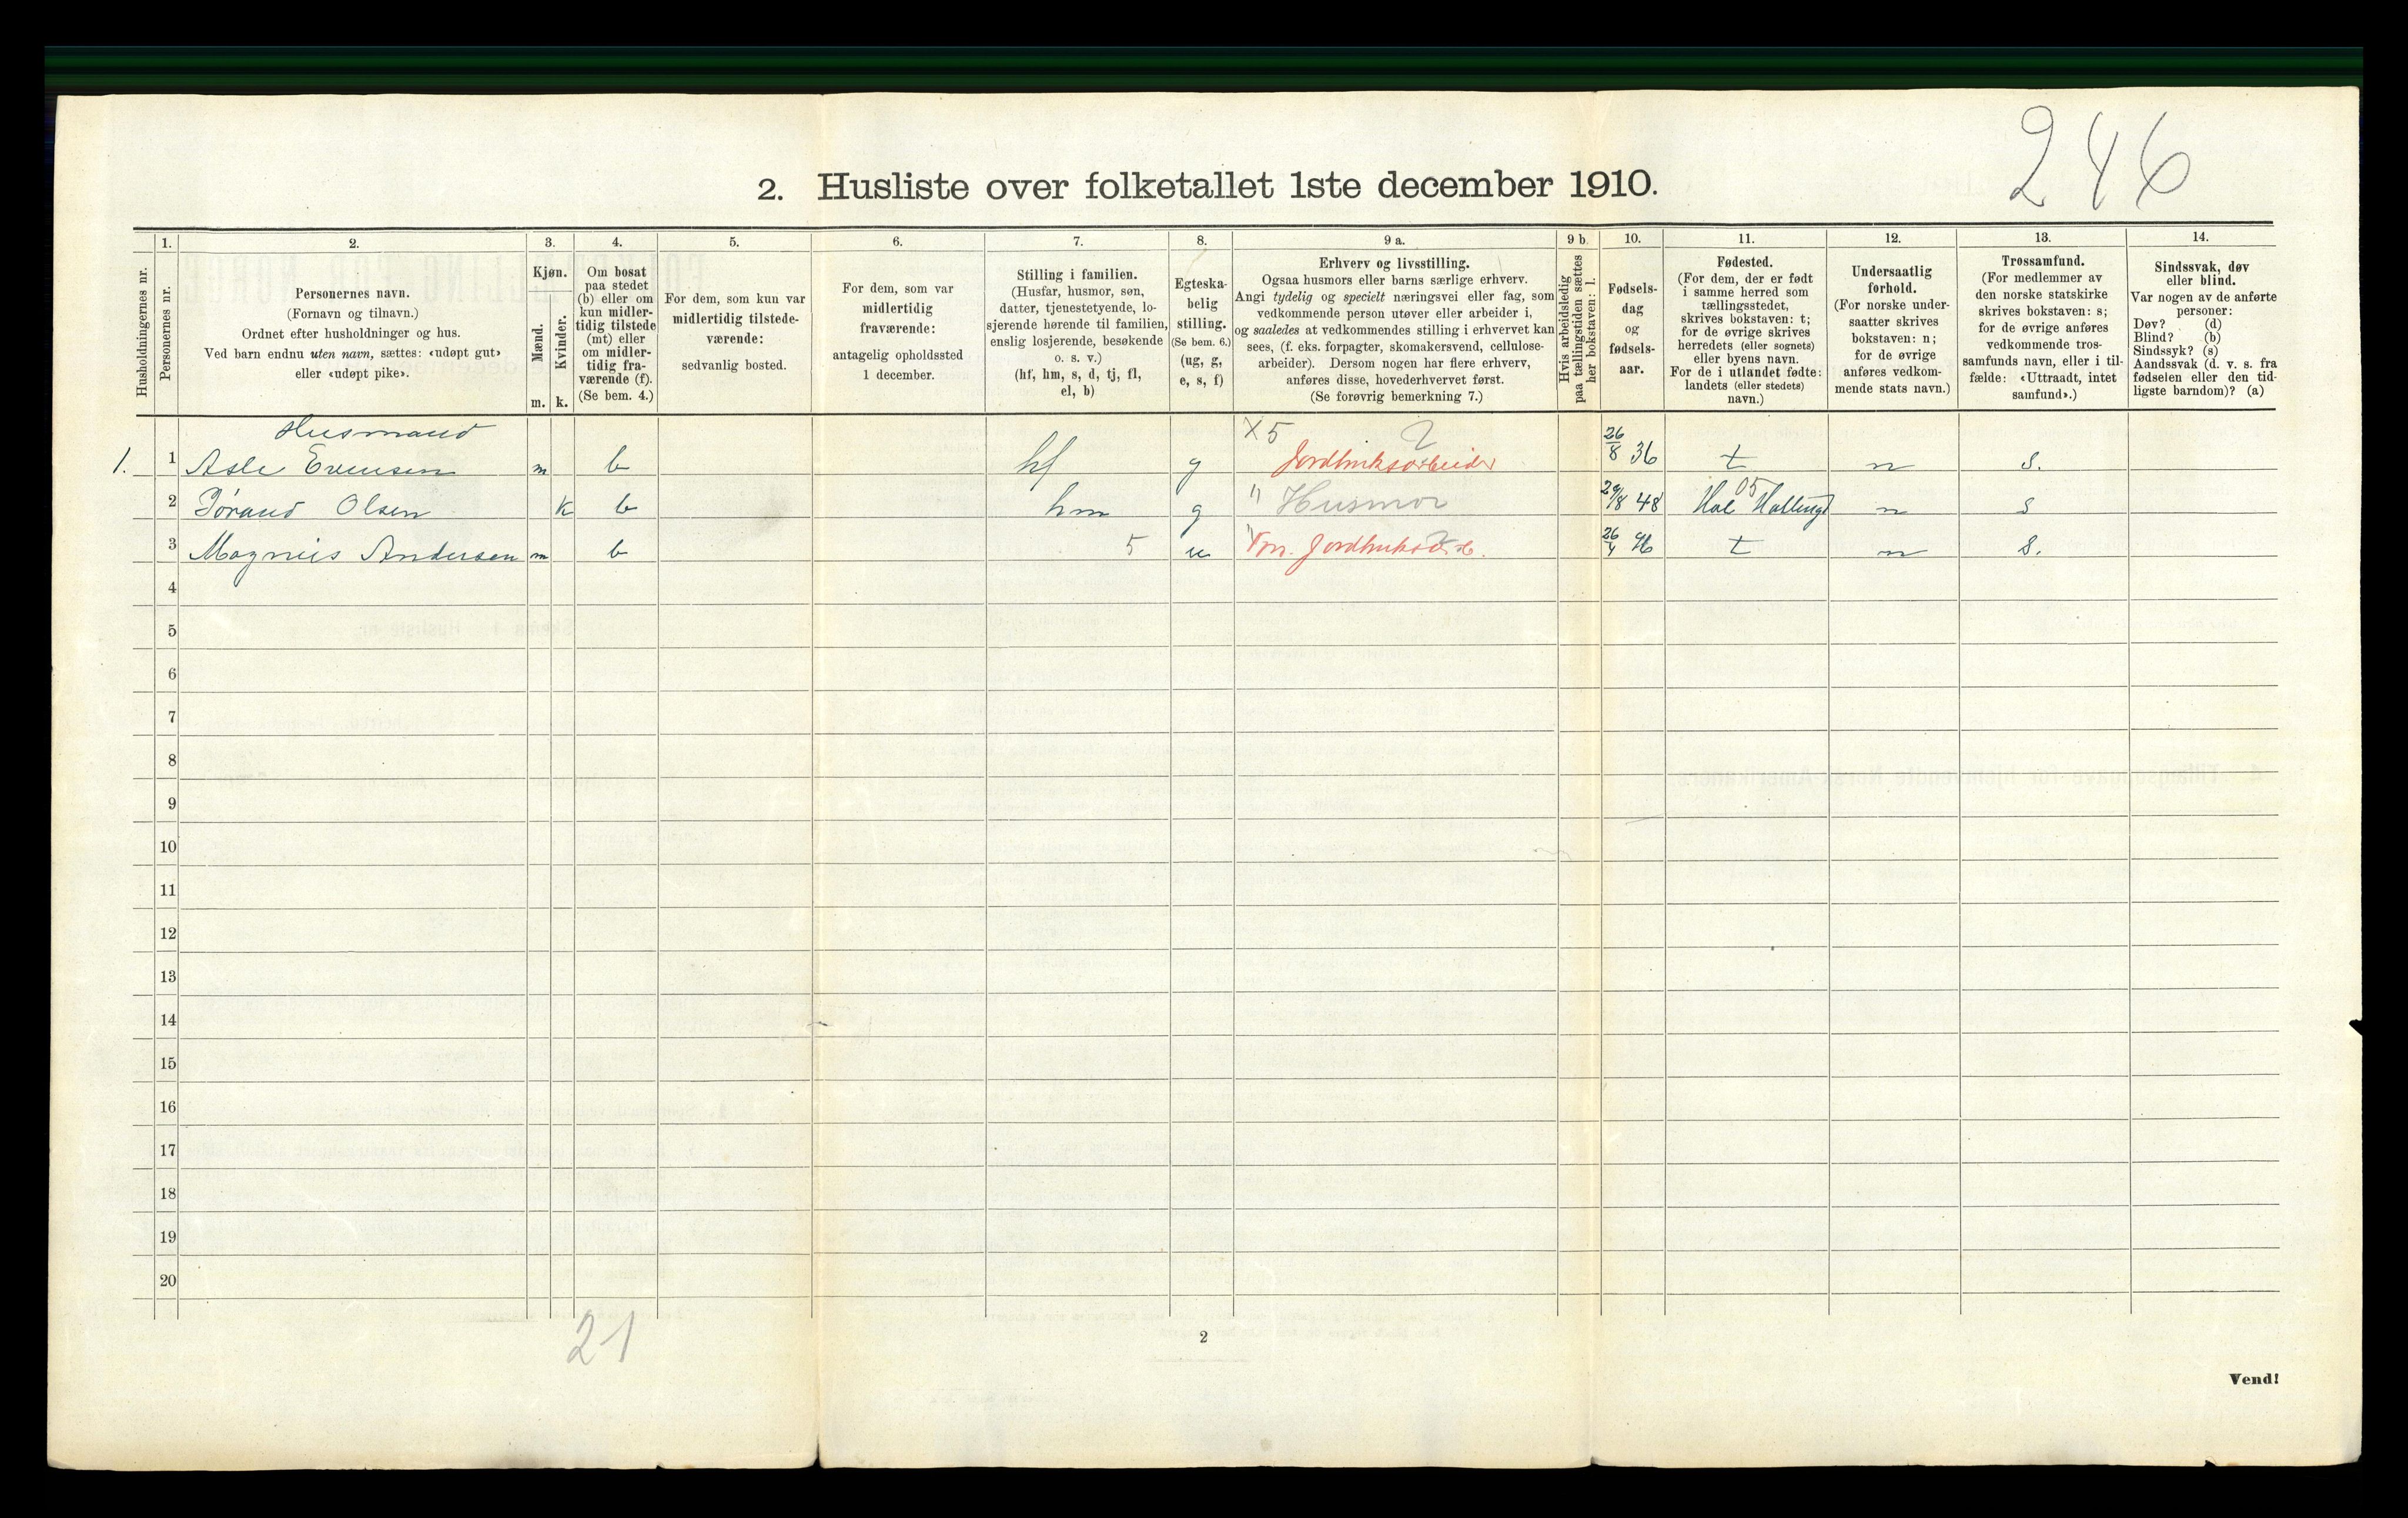 246
2. Husliste over folketallet 1ste december 1910.
Husholdningernes nr.
1.
Personernes nr.
2.
Personernes navn.
(Fornavn og tilnavn.)
Ordnet efter husholdninger og hus.
Ved barn endnu uten navn, sættes: «udøpt gut»
eller «udøpt pike».
3.
Kjøn.
Mænd.
Kvinder.
m. k.
4.
Om bosat
paa stedet
(b) eller om
kun midler-
tidig tilstede
(mt) eller
om midler-
tidig fra-
værende (f).
(Se bem. 4.)
5.
For dem, som kun var
midlertidig tilstede-
værende:
sedvanlig bosted.
6.
For dem, som var
midlertidig
fraværende:
antagelig opholdssted
1 december.
7.
Stilling i familien.
(Husfar, husmor, søn,
datter, tjenestetyende, lo-
sjerende hørende til familien,
enslig losjerende, besøkende
o. s. v.)
(hf, hm, s, d, tj, fl,
el, b)
8.
Egteska-
belig
stilling.
(Se bem. 6.)
(ug, g,
e, s, f)
9 a.
Erhverv og livsstilling.
Ogsaa husmors eller barns særlige erhverv.
Angi tydelig og specielt næringsvei eller fag, som
vedkommende person utøver eller arbeider i,
og saaledes at vedkommendes stilling i erhvervet kan
sees, (f. eks. forpagter, skomakersvend, cellulose-
arbeider). Dersom nogen har flere erhverv,
anføres disse, hovederhvervet først.
(Se forøvrig bemerkning 7.)
9 b.
Hvis arbeidsledig
paa tællingstiden sættes
her bokstaven: l.
10.
Fødsels-
dag
og
fødsels-
aar.
11.
Fødested.
(For dem, der er født
i samme herred som
tællingsstedet,
skrives bokstaven: t;
for de øvrige skrives
herredets (eller sognets)
eller byens navn.
For de i utlandet fødte:
landets (eller stedets)
navn.)
12.
Undersaatlig
forhold.
(For norske under-
saatter skrives
bokstaven: n;
for de øvrige
anføres vedkom-
mende stats navn.)
13.
Trossamfund.
(For medlemmer av
den norske statskirke
skrives bokstaven: s;
for de øvrige anføres
vedkommende tros-
samfunds navn, eller i til-
fælde: «Uttraadt, intet
samfund».)
14.
Sindssvak, døv
eller blind.
Var nogen av de anførte
personer:
Døv? (d)
Blind? (b)
Sindssyk? (s)
Aandssvak (d. v. s. fra
fødselen eller den tid-
ligste barndom)? (a)
Husmand X 5 2
1. 1 Asle Evensen m b hf g Jordbruksarbeider 26/8 36 t n s.
05
2 Jørand Olsen k b hm g " Husmor 29/8 48 Hol Hallingd n s
3 Magnus Andersen m b 5 u " Jordbruksarb. 26/4 t n s.
4
5
6
7
8
9
10
11
12
13
14
15
16
17
18
19
20
21
2
Vend!